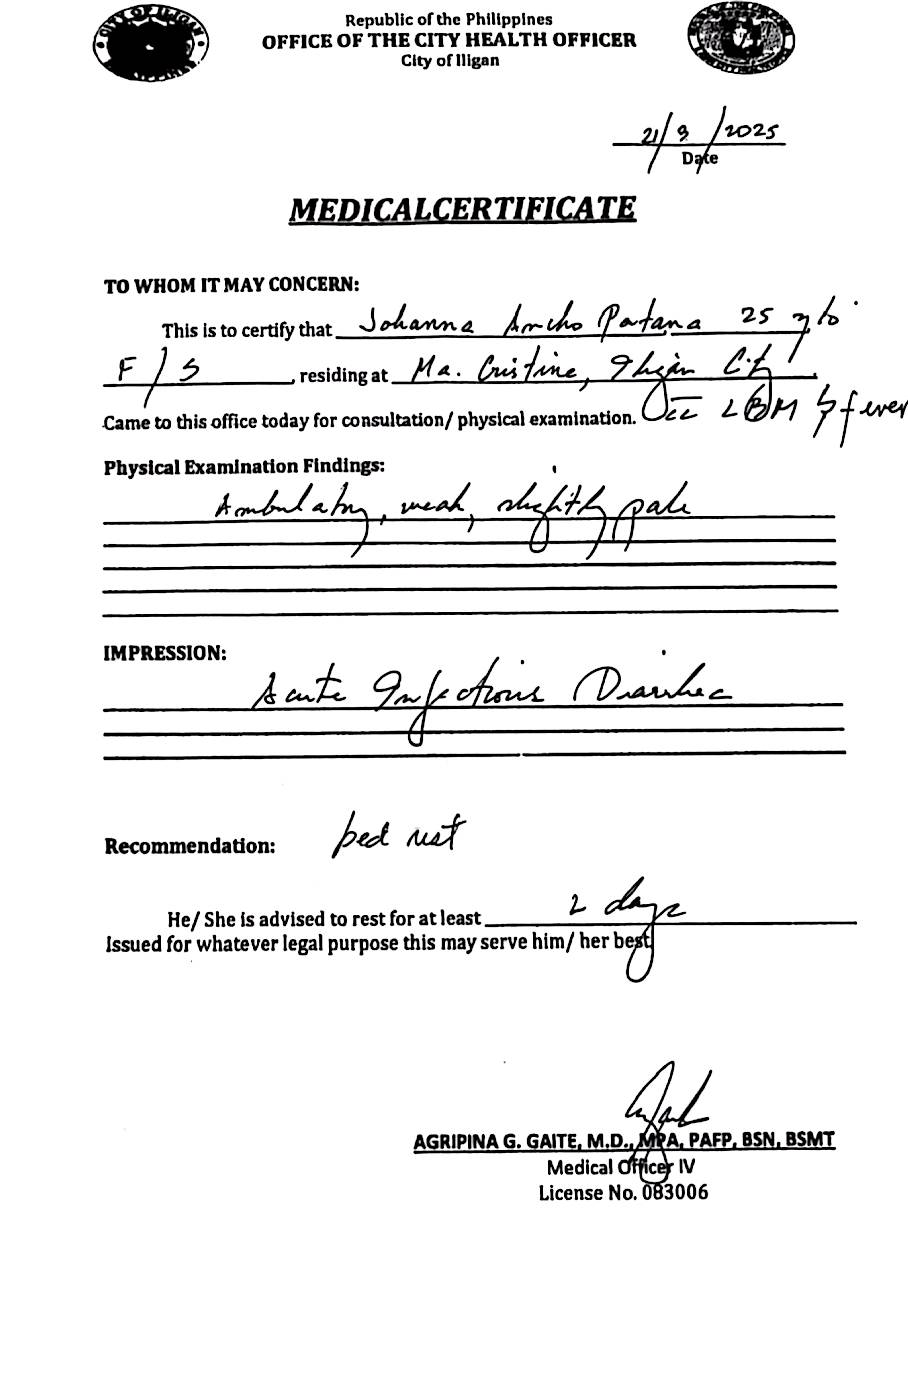 CITY OF ILIGAN
Republic of the Philippines
OFFICE OF THE CITY HEALTH OFFICER
City of Iligan
21/9/2025
Date
MEDICALCERTIFICATE
TO WHOM IT MAY CONCERN:
This is to certify that Johanna Ancho Patana 25 y/o
F/S, residing at Ma. Cristine, Iligan City
Came to this office today for consultation/ physical examination. LBM fever
Physical Examination Findings:
Ambulatory, weak, slightly pale
IMPRESSION:
Acute Infectious Diarrhea
Recommendation: bed rest
He/ She is advised to rest for at least 2 days
Issued for whatever legal purpose this may serve him/ her best.
AGRIPINA G. GAITE, M.D., MPA, PAFP, BSN, BSMT
Medical Officer IV
License No. 083006